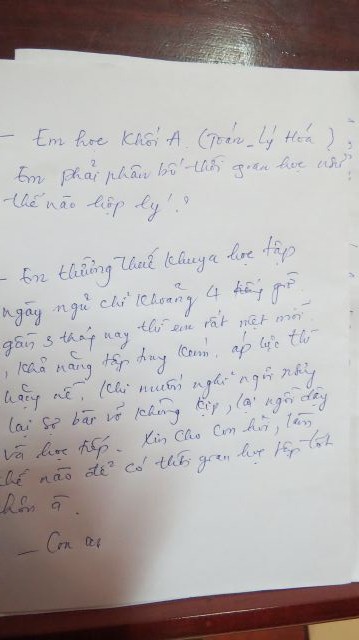 - Em học Khối A. (Toán_Lý Hóa)
Em phải phân bố thời gian học như
thế nào hợp lý ?
- Em thường thức khuya học tập
ngày ngủ chỉ khoảng 4 tiếng giờ
gần 3 tháng nay thì em rất mệt mỏi
, khả năng tập trung kém. áp lực thi
nặng nề. Khi muốn nghỉ ngơi
lại sợ bài vở không kịp, lại ngồi dậy
và học tiếp. Xin cho con hỏi, làm
thế nào để có thời gian học tập tốt
hơn ạ.
- Con